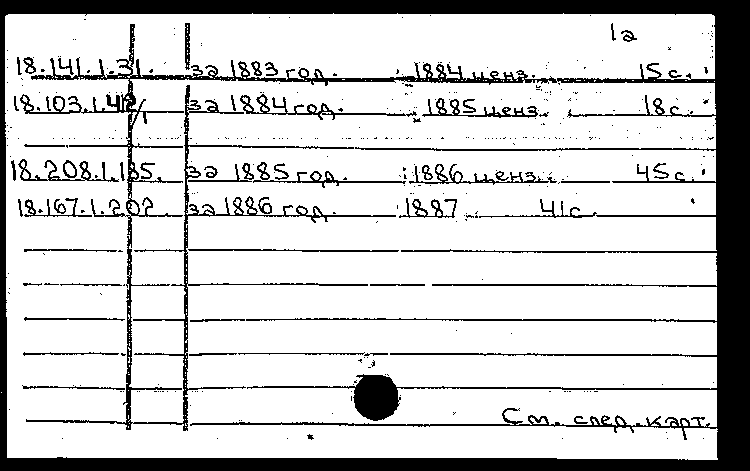 1а
18.141.1.31. за 1883 год. 1884 ценз. 15 с.
18.103.1.42/1 за 1884 год. 1885 ценз. 18 с.
18.208.1.185. за 1885 год. 1886 ценз. 45 с.
18.167.1.202 за 1886 год. 1887 41 с.
См. след. карт.